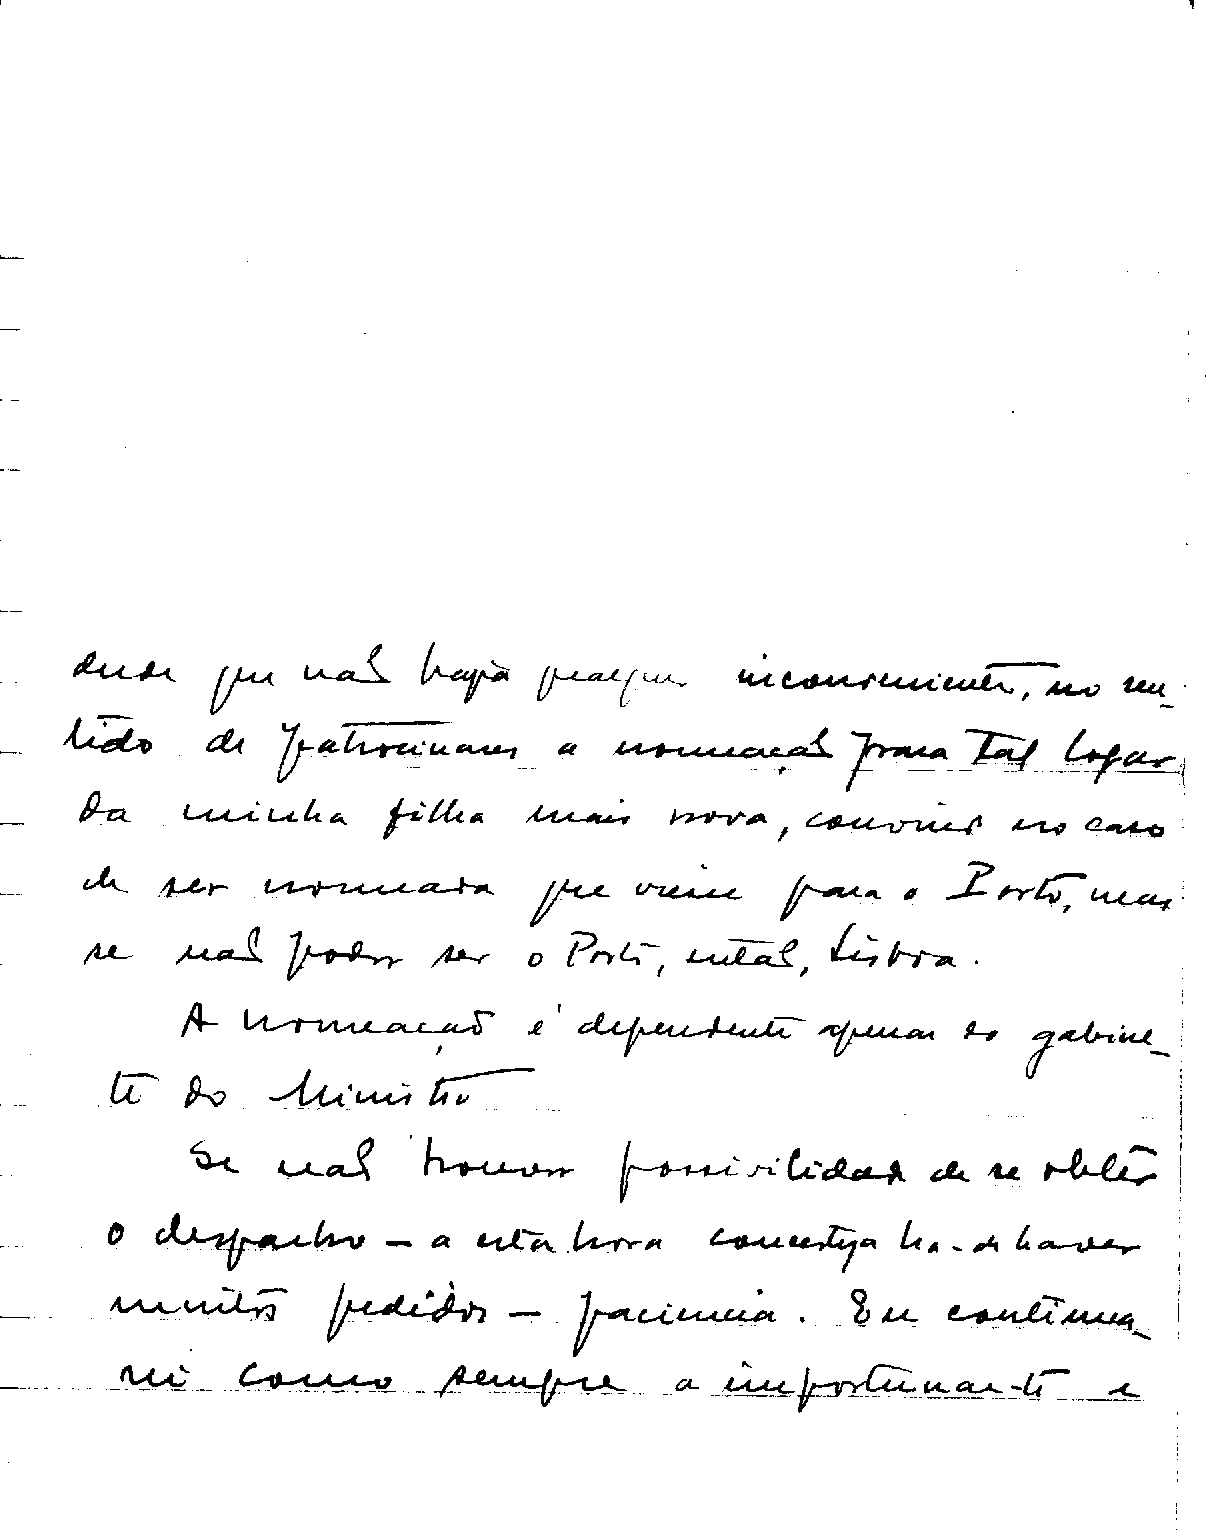 desde que não haja qualquer inconveniente, no sen-
tido de patrocinares a nomeação para tal logar
da minha filha mais nova, convindo no caso
de ser nomeada que viesse para o Porto, mas
se não poder ser o Porto, então, Lisboa.
A nomeação é dependente apenas do gabine-
te do Ministro
Se não houver possibilidade de se obter
o despacho — a esta hora com certeza ha-de haver
muitos pedidos — paciencia. Eu continua-
rei como sempre a importunar-te e